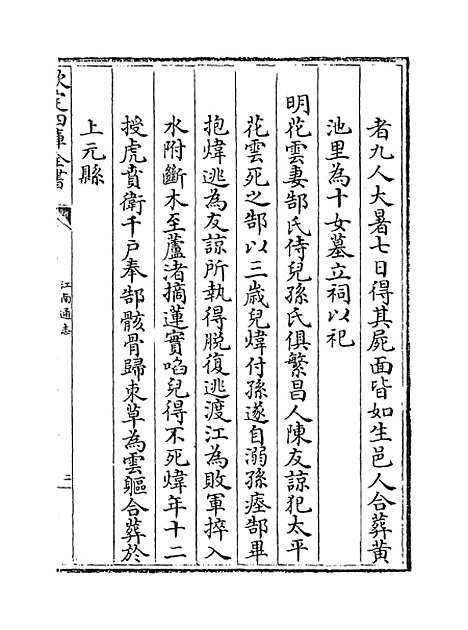 者九人大暑七日得其屍面皆如生邑人合葬黄
池里為十女墓立祠以祀
明花雲妻郜氏侍兒孫氏俱繁昌人陳友諒犯太平
花雲死之郜以三歲兒煒付孫遂自溺孫瘞郜畢
抱煒逃為友諒所執得脱復逃渡江為敗軍捽入
水附斷木至蘆渚摘蓮實啗兒得不死煒年十二
授虎賁衛千戸奉郜骸骨歸束草為雲軀合葬於
上元縣
欽定四庫全書
江南通志
三